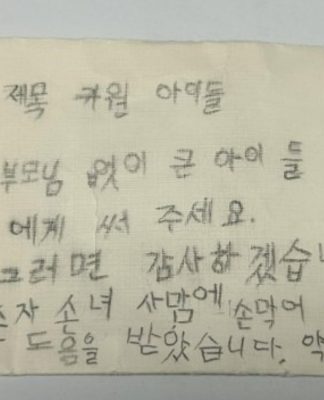 제목 귀원 아이들
부모님 없이 큰 아이 들
에게 써 주세요.
그러면 감사하겠습
손자 손녀 사맘에 손막어
도음을 받았습니다. 약